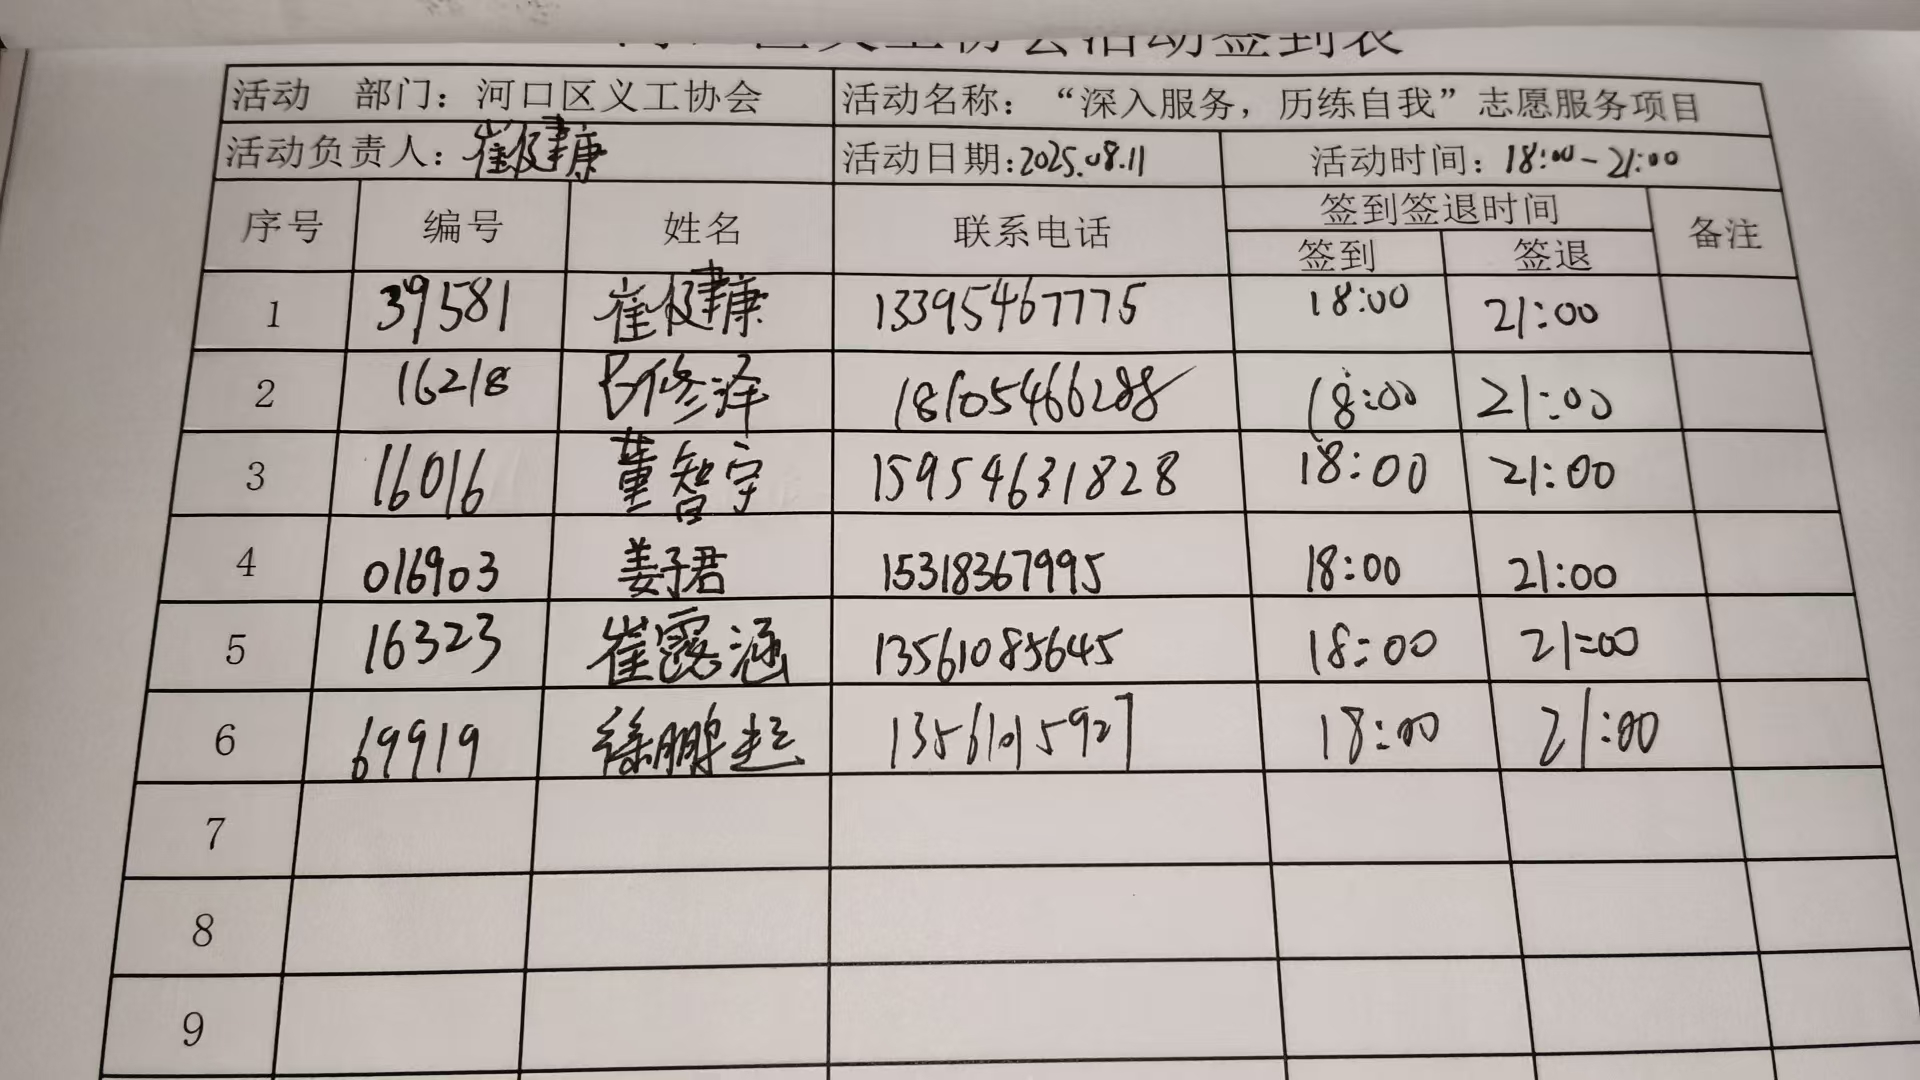 河口区义工协会活动签到表
活动 部门：河口区义工协会 活动名称：“深入服务，历练自我”志愿服务项目
活动负责人：崔健康 活动日期：2025.08.11 活动时间：18:00-21:00
序号 编号 姓名 联系电话 签到签退时间 备注
签到 签退
1 39581 崔健康 13395467775 18:00 21:00
2 16218 修泽 18105466288 18:00 21:00
3 16016 董智宇 15954631828 18:00 21:00
4 016903 姜子君 15318367995 18:00 21:00
5 16323 崔露涵 13561085645 18:00 21:00
6 69919 徐鹏起 18:00 21:00
7
8
9